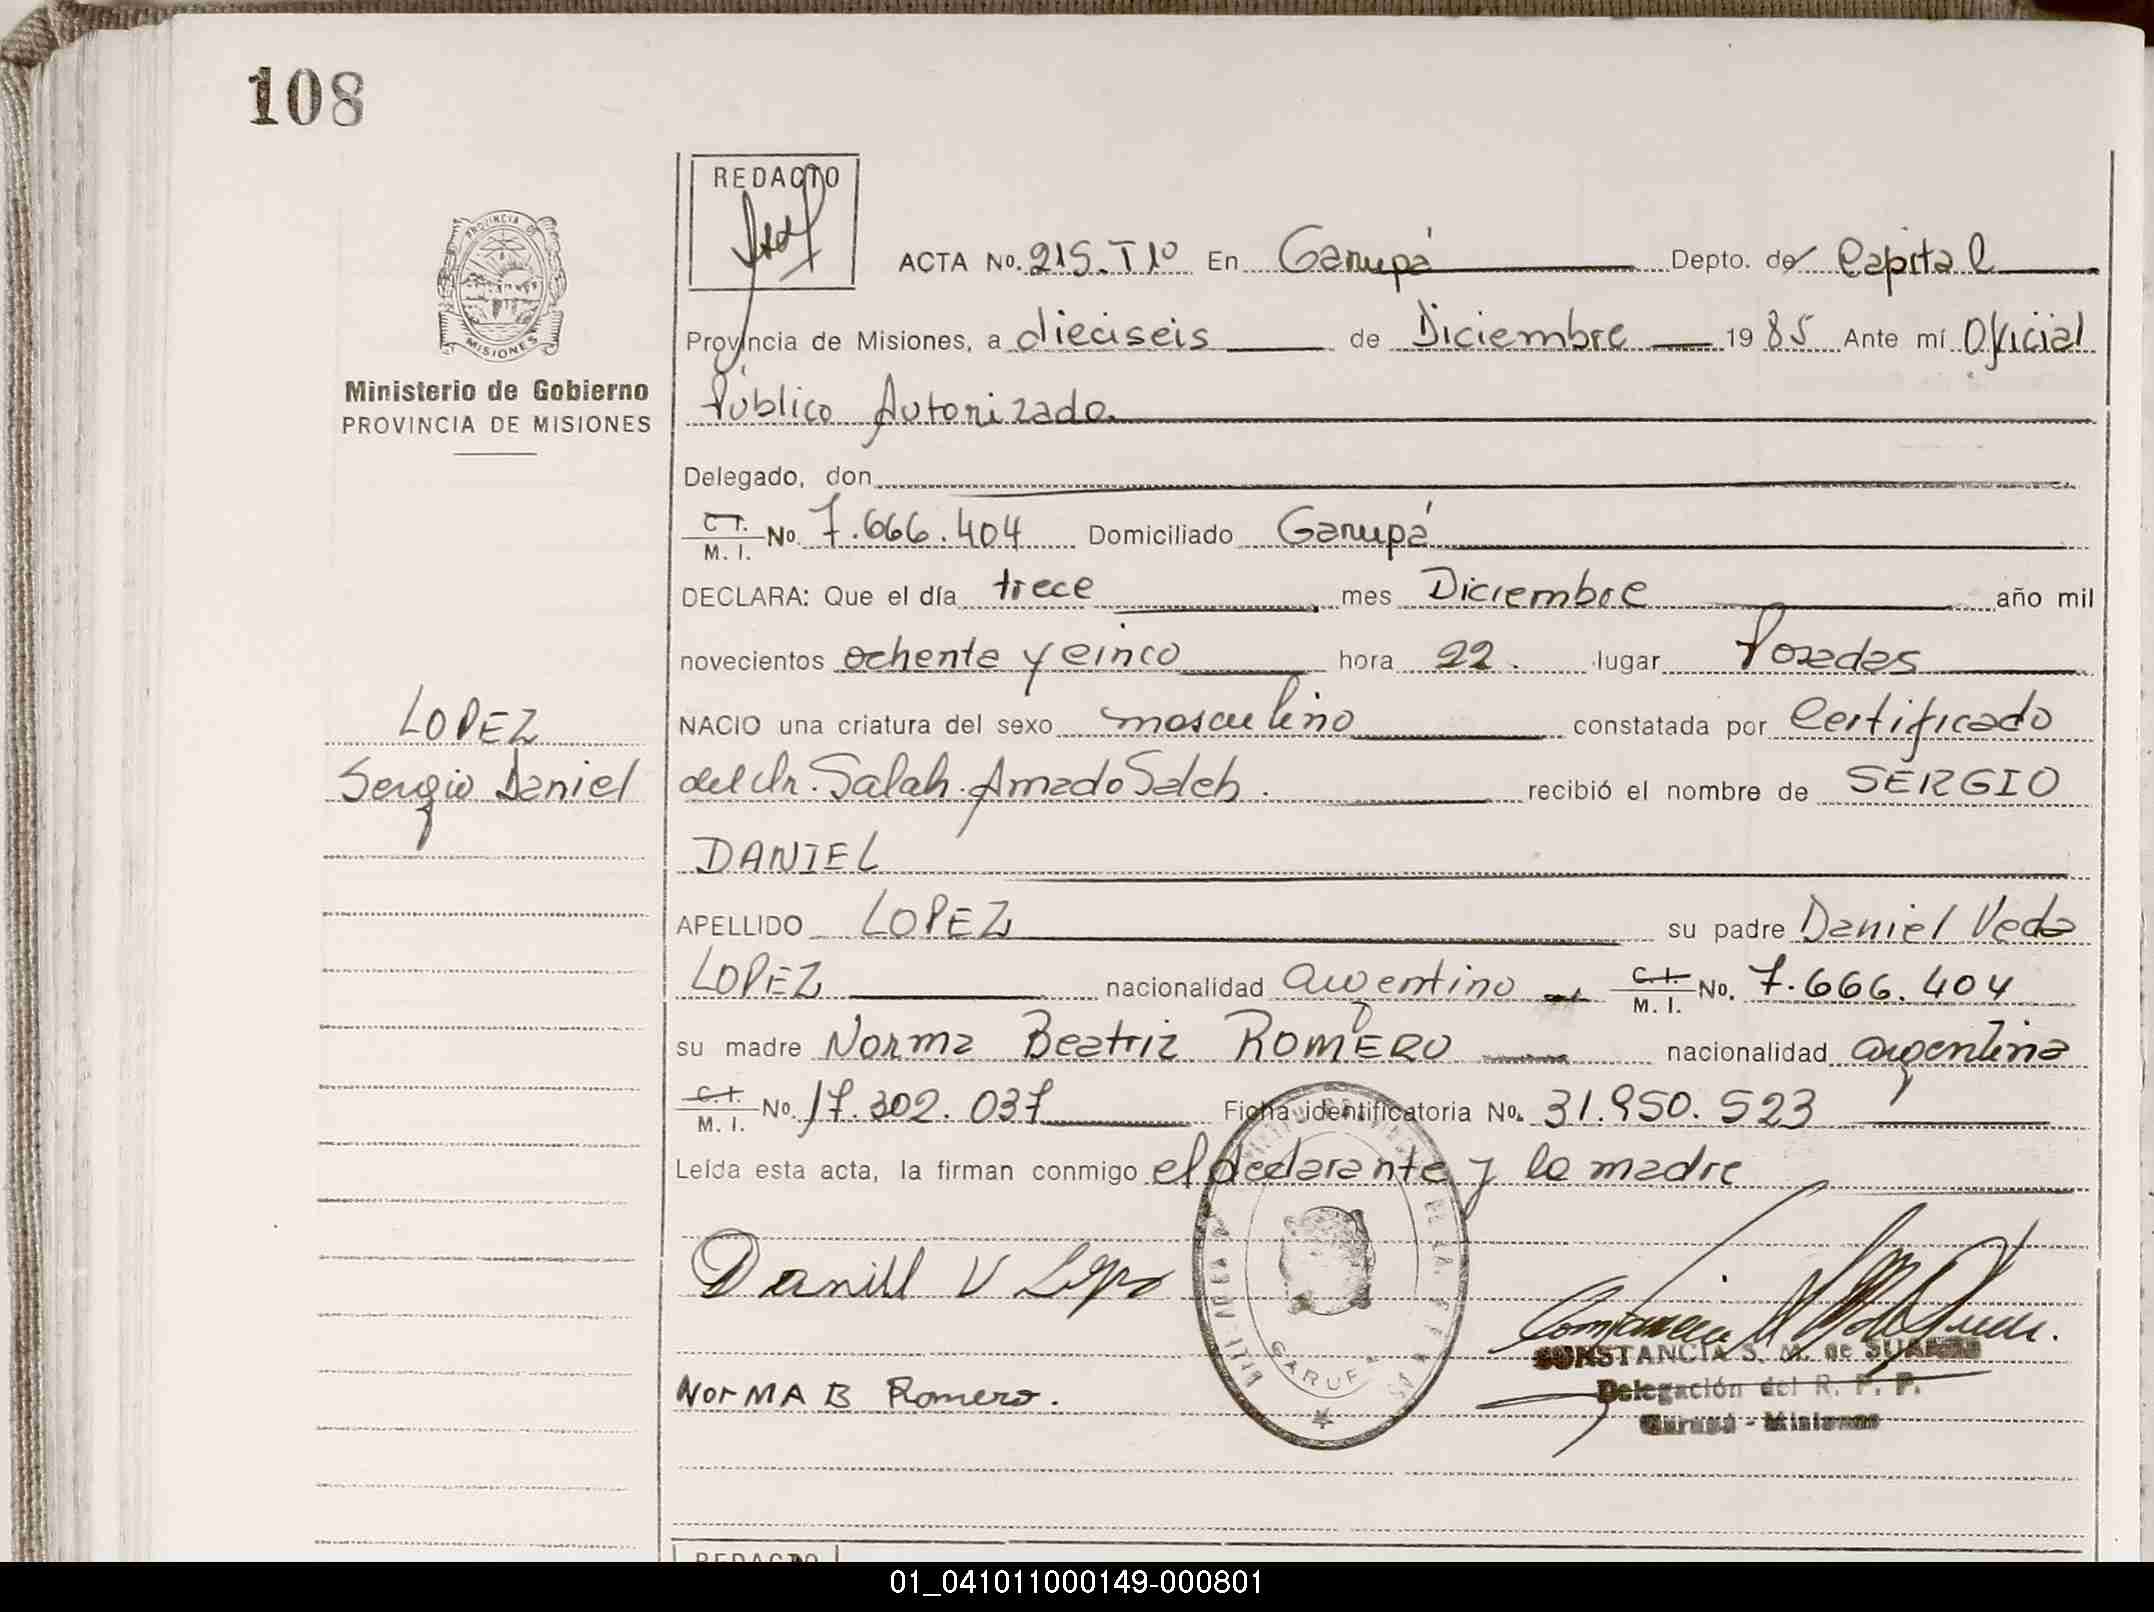 108
REDACTO
PROVINCIA DE
MISIONES
Ministerio de Gobierno
PROVINCIA DE MISIONES
ACTA No. 215. T 1º En Garupá Depto. de Capital
Provincia de Misiones, a dieciseis de Diciembre 1985 Ante mí Oficial
Público Autorizado.
Delegado, don
C. I. M. I. No. 7.666.404 Domiciliado Garupá
DECLARA: Que el día trece mes Diciembre año mil
novecientos ochenta y cinco hora 22. lugar Posadas
LOPEZ
Sergio Daniel
NACIO una criatura del sexo masculino constatada por Certificado
del Dr. Salah. Amado Saleh. recibió el nombre de SERGIO
DANIEL
APELLIDO LOPEZ su padre Daniel Veda
LOPEZ nacionalidad argentino C. I. M. I. No. 7.666.404
su madre Norma Beatriz ROMERO nacionalidad argentina
C. I. M. I. No. 17.302.037 Ficha identificatoria No. 31.950.523
Leída esta acta, la firman conmigo el declarante y la madre
Daniel V Lopez
NorMA B Romero.
GARUPA
CONSTANCIA S. M. de SUAREZ
Delegación del R. P. P.
Garupá - Misiones
REDACTO
01_041011000149-000801